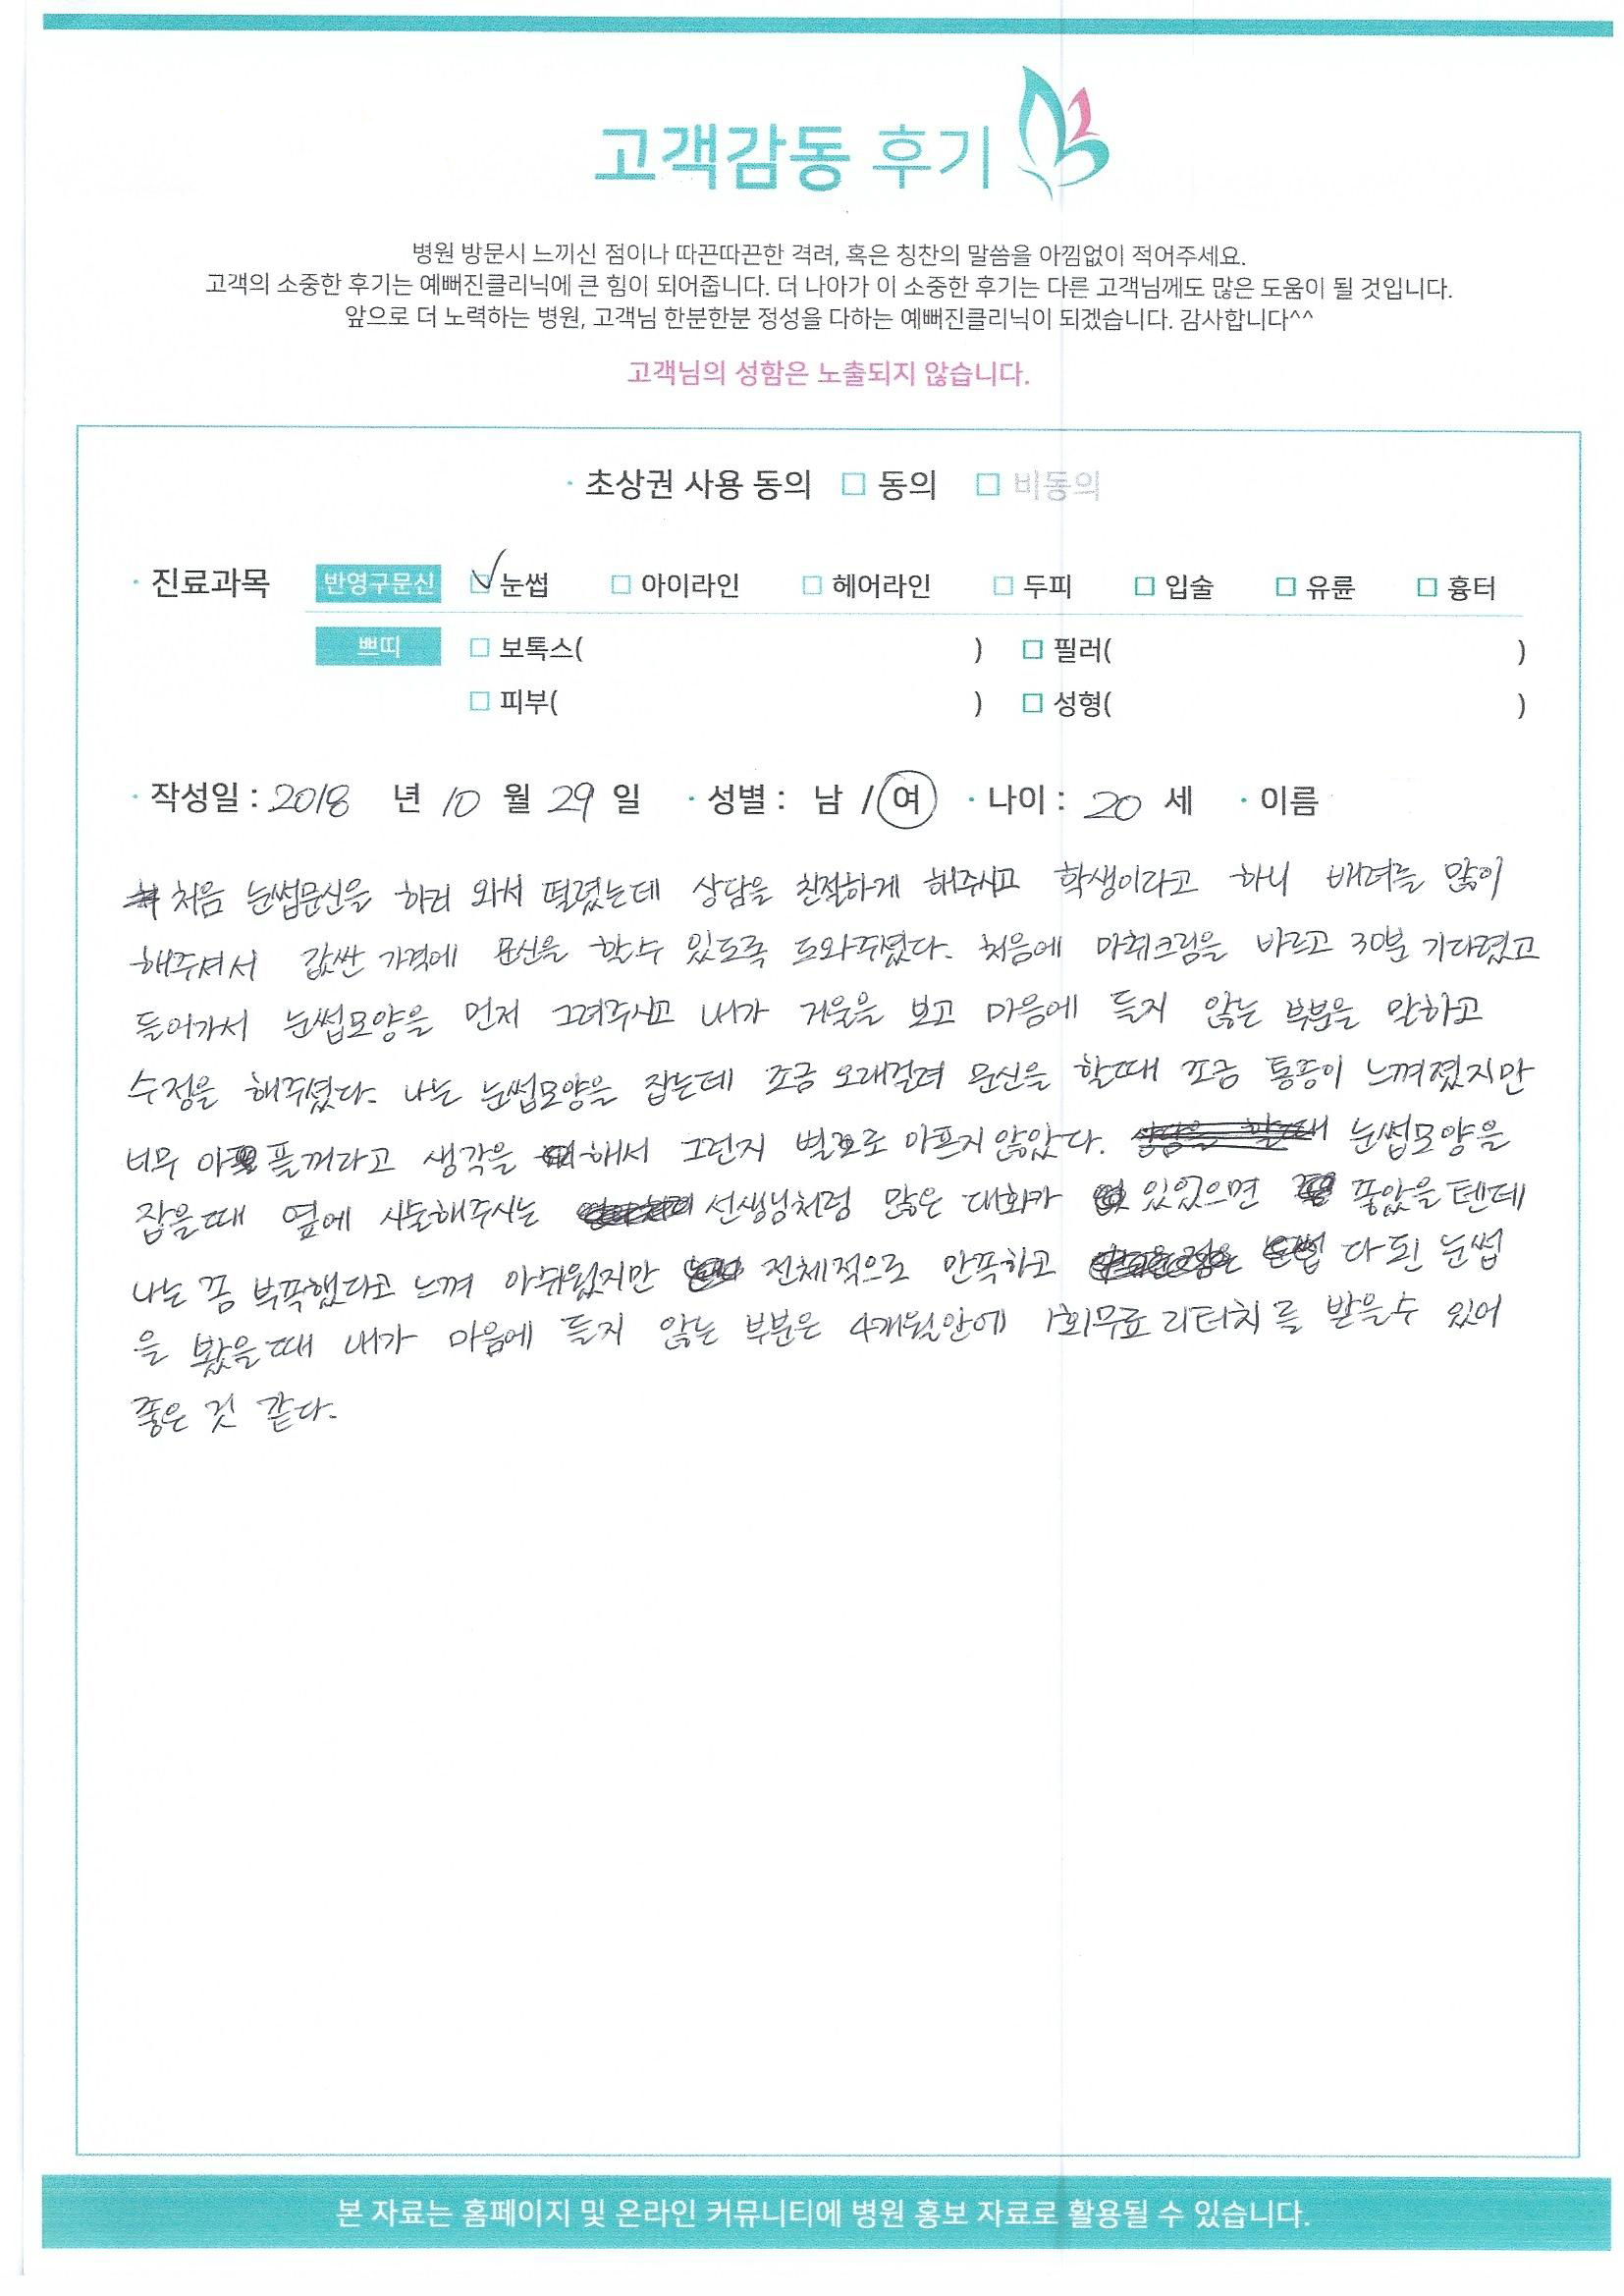 고객감동 후기
병원 방문시 느끼신 점이나 따끈따끈한 격려, 혹은 칭찬의 말씀을 아낌없이 적어주세요.
고객의 소중한 후기는 예뻐진클리닉에 큰 힘이 되어줍니다. 더 나아가 이 소중한 후기는 다른 고객님께도 많은 도움이 될 것입니다.
앞으로 더 노력하는 병원, 고객님 한분한분 정성을 다하는 예뻐진클리닉이 되겠습니다. 감사합니다^^
고객님의 성함은 노출되지 않습니다.
· 초상권 사용 동의 □ 동의 □ 비동의
· 진료과목 반영구문신 ☑ 눈썹 □ 아이라인 □ 헤어라인 □ 두피 □ 입술 □ 유륜 □ 흉터
쁘띠 □ 보톡스( ) □ 필러( )
□ 피부( ) □ 성형( )
· 작성일 : 2018 년 10 월 29 일 · 성별 : 남 / 여 · 나이 : 20 세 · 이름
처음 눈썹문신을 하러 와서 떨렸는데 상담을 친절하게 해주시고 학생이라고 하니 배려를 많이
해주셔서 값싼 가격에 문신을 할수 있도록 도와주셨다. 처음에 마취크림을 바르고 30분 기다렸고
들어가서 눈썹모양을 먼저 그려주시고 내가 거울을 보고 마음에 들지 않는 부분을 말하고
수정을 해주셨다. 나는 눈썹모양을 잡는데 조금 오래걸려 문신을 할때 조금 통증이 느껴졌지만
너무 아플꺼라고 생각을 해서 그런지 별로 아프지 않았다. 눈썹모양을
잡을때 옆에 시술해주시는 선생님처럼 많은 대화가 있었으면 좋았을텐데
나는 좀 부족했다고 느껴 아쉬웠지만 전체적으로 만족하고 다된 눈썹
을 봤을때 내가 마음에 들지 않는 부분은 4개월안에 1회무료 리터치를 받을수 있어
좋은 것 같다.
본 자료는 홈페이지 및 온라인 커뮤니티에 병원 홍보 자료로 활용될 수 있습니다.